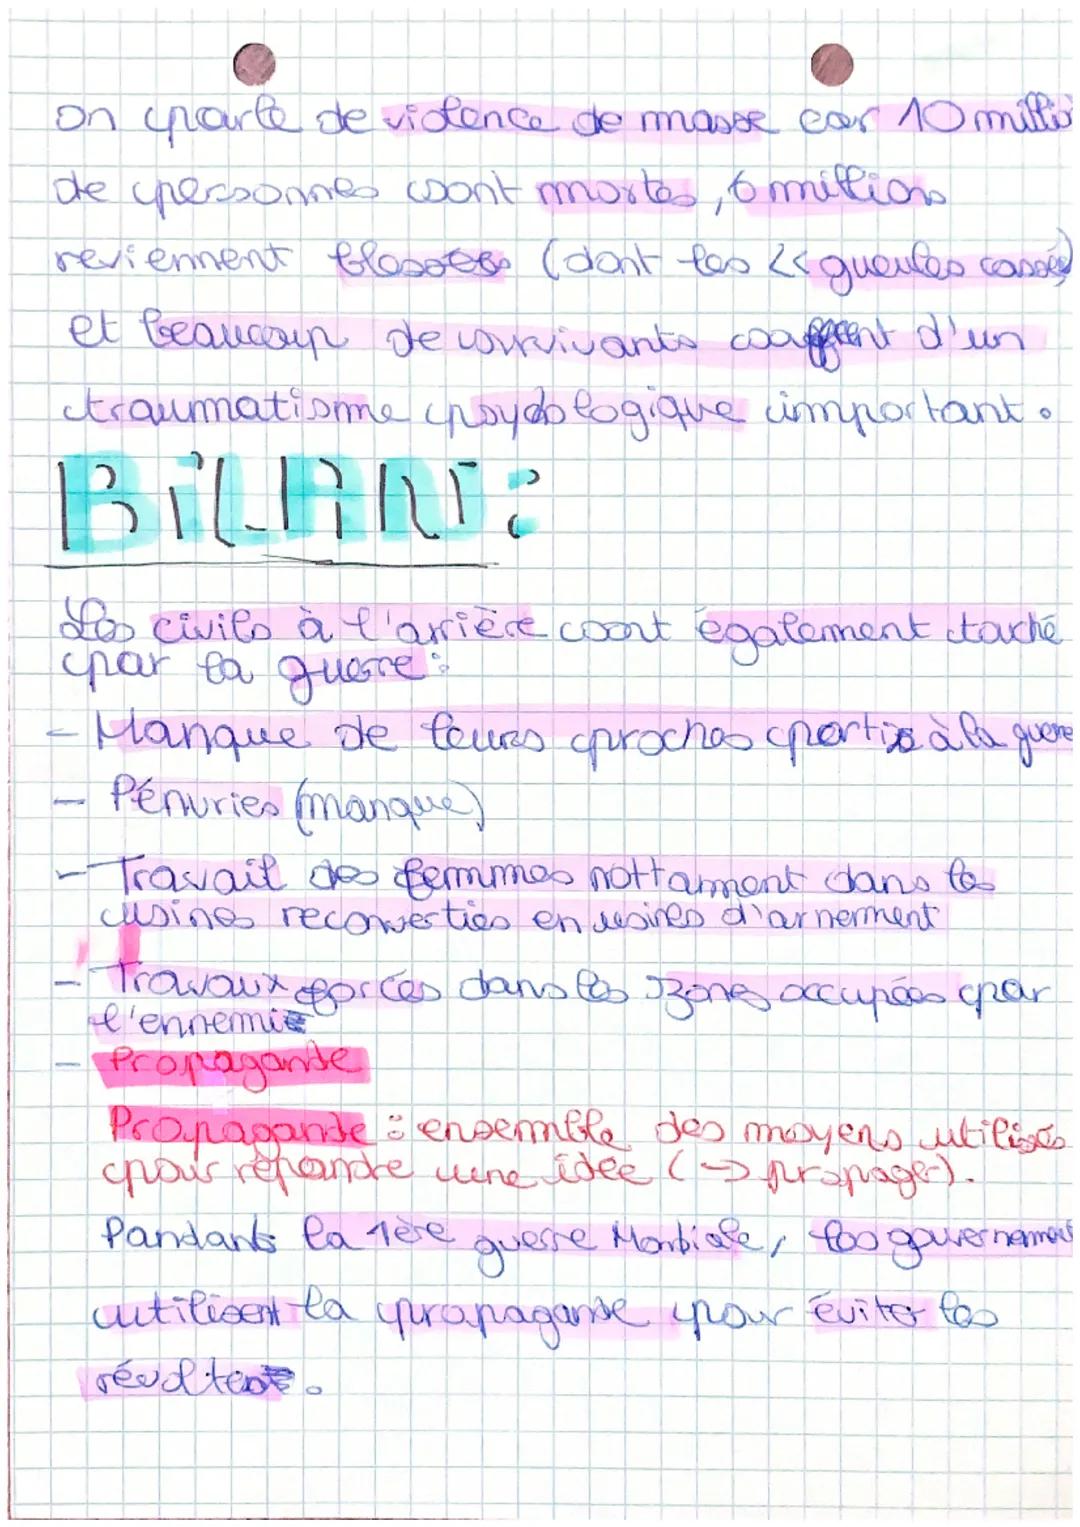 on parle de violence de masse car 10 millio
de personnes sont mortes, 6 millions
reviennent blessées (dont les << gueules cassé
et beaucoup de survivants souffrent d'un
traumatisme psycologique important.
BiLAN :
Les civils à l'arrière sont également touché
par la guerre :
- Manque de leurs proches partis à la guerre
- Pénuries (manque)
- Travail des femmes nottament dans les
usines reconverties en usines d'armement
- Travaux forcés dans les zones occupées par
l'ennemie
- Propagande
Propagande : ensemble des moyens utilisés
pour répandre une idée (→ propager).
Pandants la 1ère guerre Mondiale, les gouvernement
utilisent la propagande pour éviter les
révoltes.